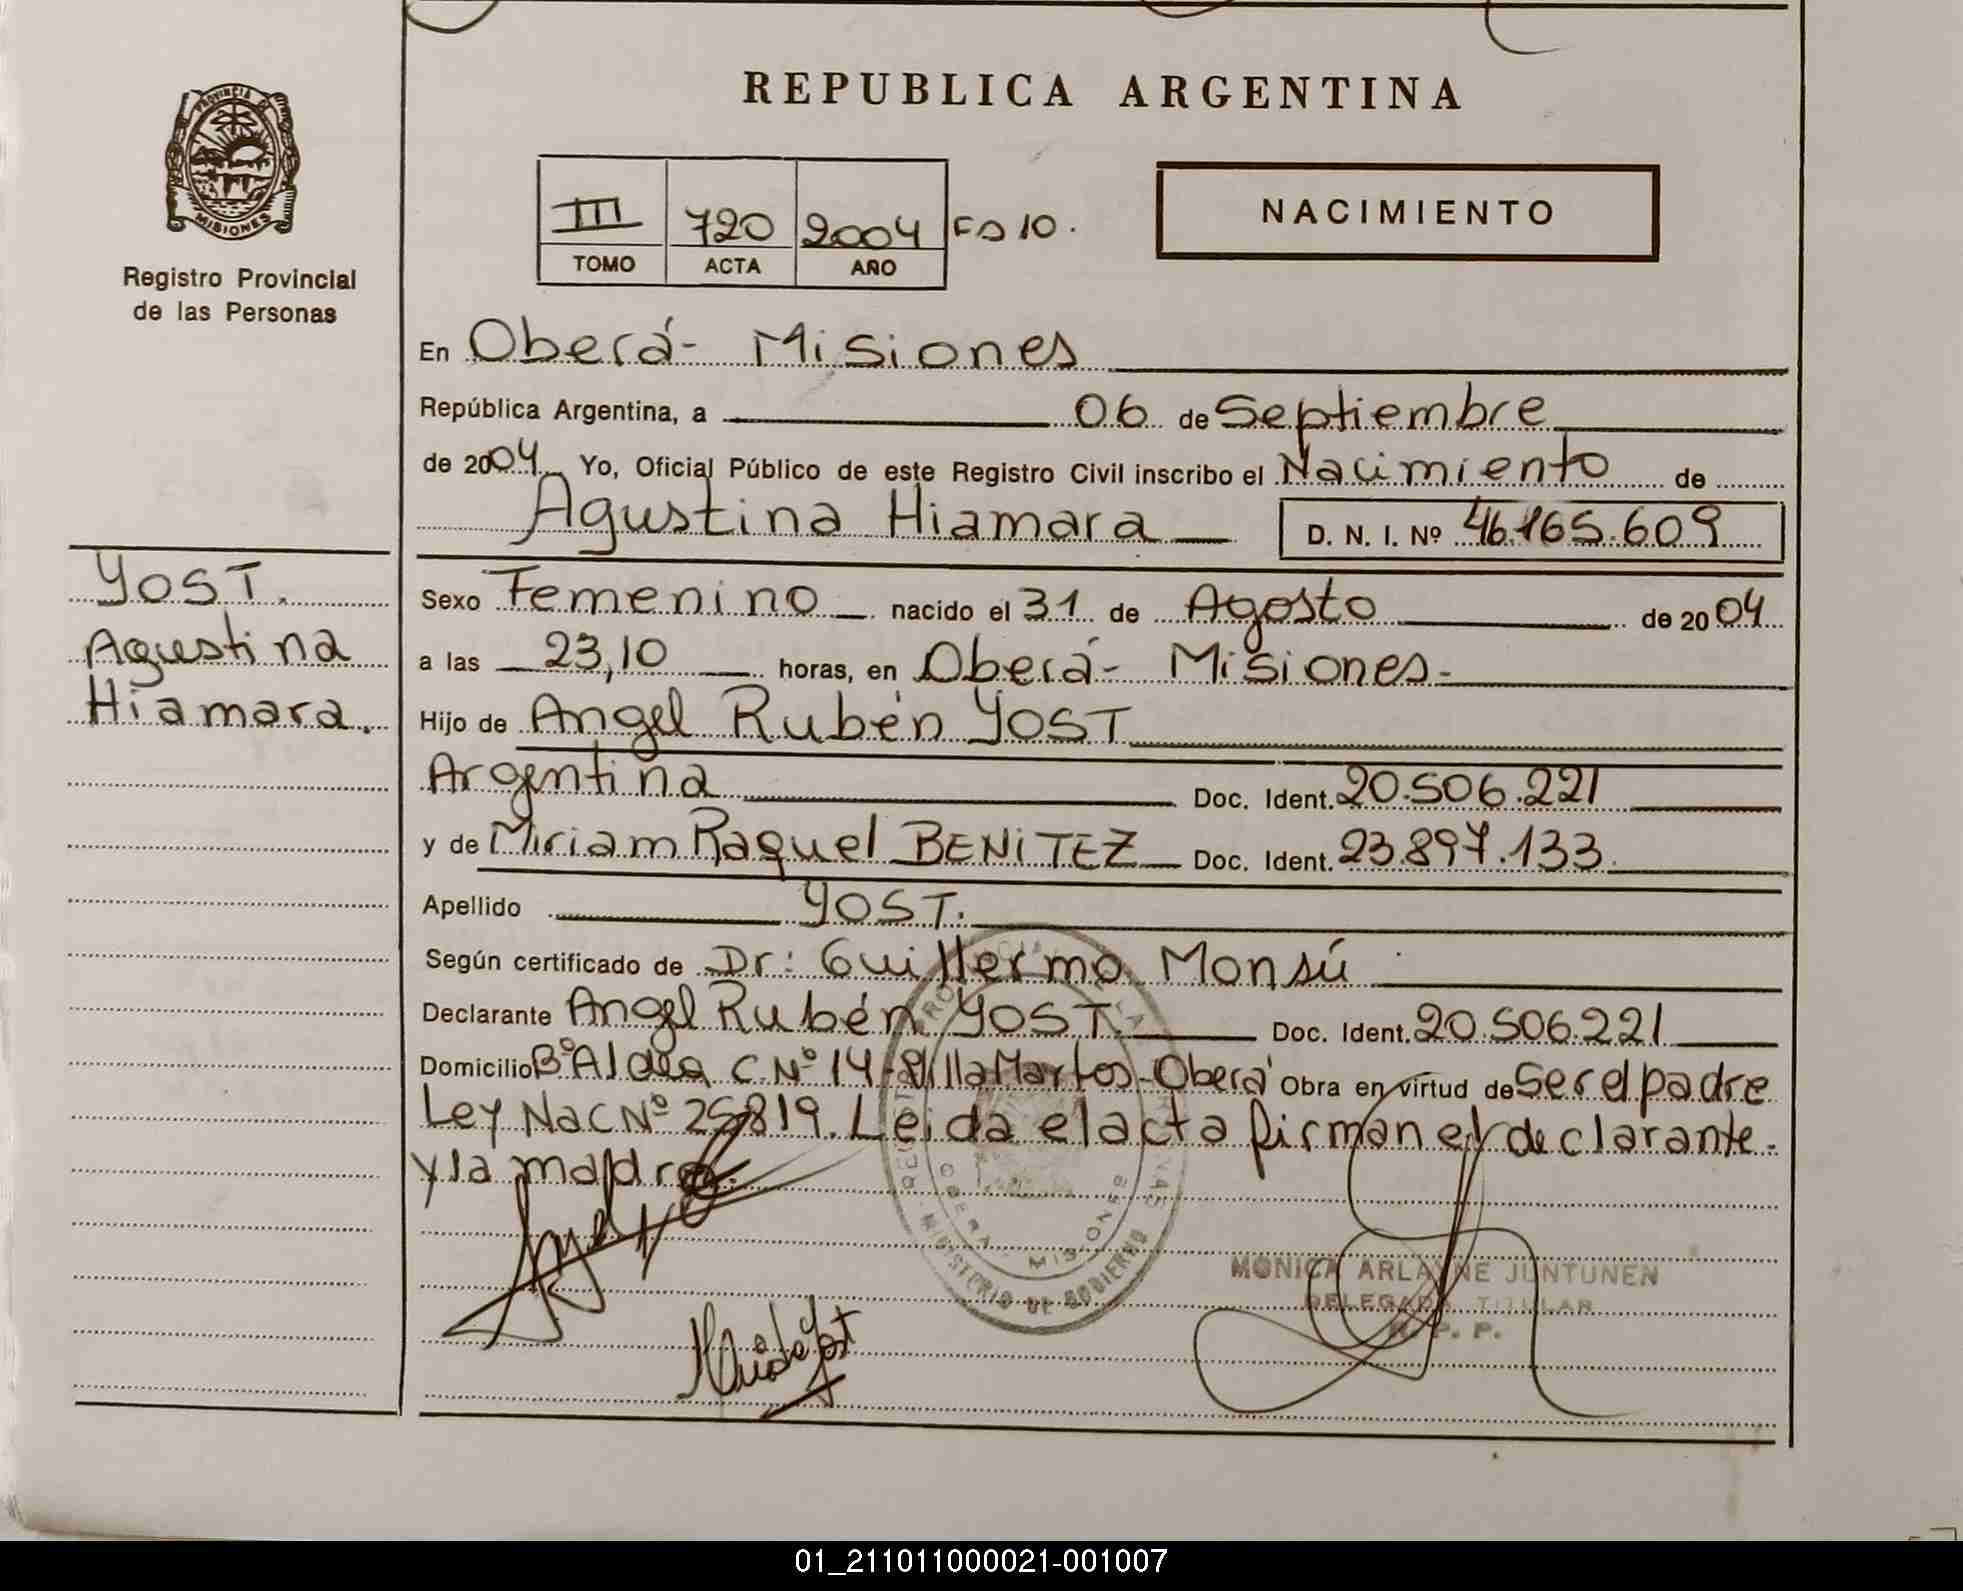 REPUBLICA ARGENTINA
PROVINCIA DE
MISIONES
Registro Provincial
de las Personas
III 720 2004 Fº 10.
TOMO ACTA AÑO
NACIMIENTO
En Oberá- Misiones
República Argentina, a 06 de Septiembre
de 2004 Yo, Oficial Público de este Registro Civil inscribo el Nacimiento de
Agustina Hiamara D. N. I. Nº 46.165.609
YOST.
Agustina
Hiamara.
Sexo Femenino nacido el 31 de Agosto de 2004
a las 23,10 horas, en Oberá- Misiones-
Hijo de Angel Rubén YOST
Argentina Doc. Ident. 20.506.221
y de Miriam Raquel BENITEZ Doc. Ident. 23.897.133
Apellido YOST.
Según certificado de Dr: Guillermo Monsú
Declarante Angel Rubén YOST. Doc. Ident. 20.506.221
Domicilio Bº Aldea C Nº 14-Villa Martos-Oberá Obra en virtud de Ser el padre
Ley Nac Nº 25819. Leida el acta firman el declarante
y la madre.
MINISTERIO DE GOBIERNO
OBERA MISIONES
MONICA ARLAYNE JUNTUNEN
DELEGADA TITULAR
R. P. P.
01_211011000021-001007